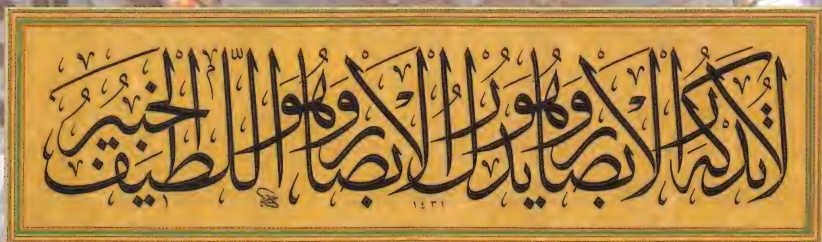 لَا تُدْرِكُهُ الْأَبْصَارُ وَهُوَ يُدْرِكُ الْأَبْصَارَ وَهُوَ اللَّطِيفُ الْخَبِيرُ
١٤٣١